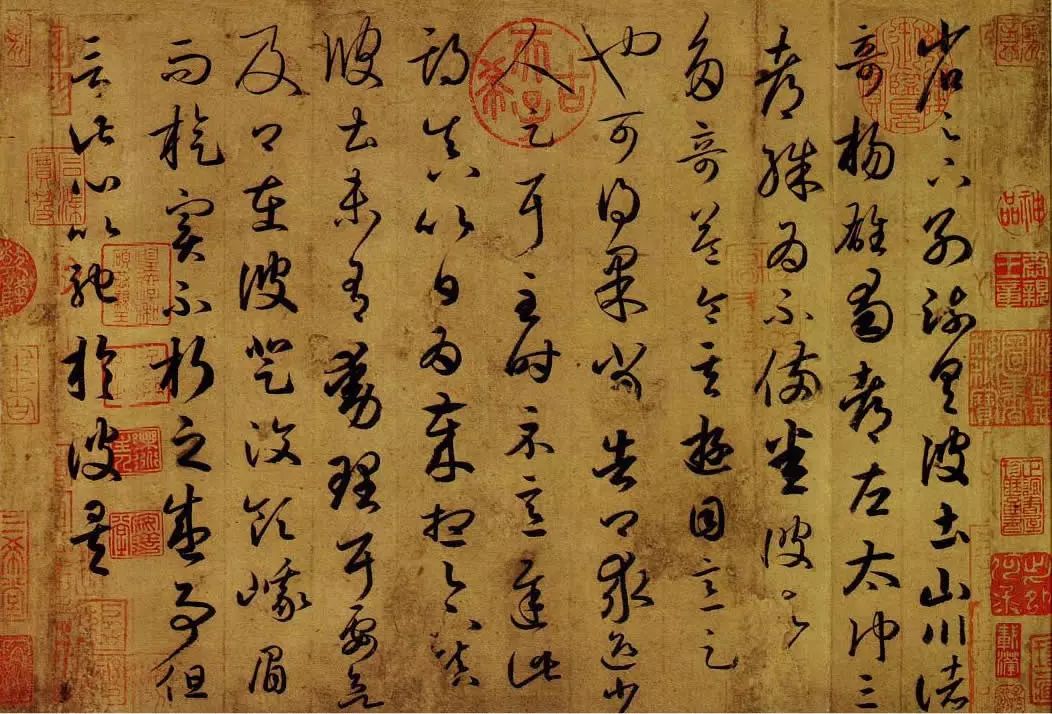 省足下別疏具彼土山川諸
奇揚雄蜀都左太沖三
都殊為不備悉彼故
多奇益令其遊目意足
也可得果當告卿求迎少
人足耳至時示意遲此
期真以日為歲想足下鎮
彼土未有動理耳要欲
及卿在彼登汶領峨眉
而旋實不朽之盛事但
言此心以馳於彼矣
古稀天子
神品